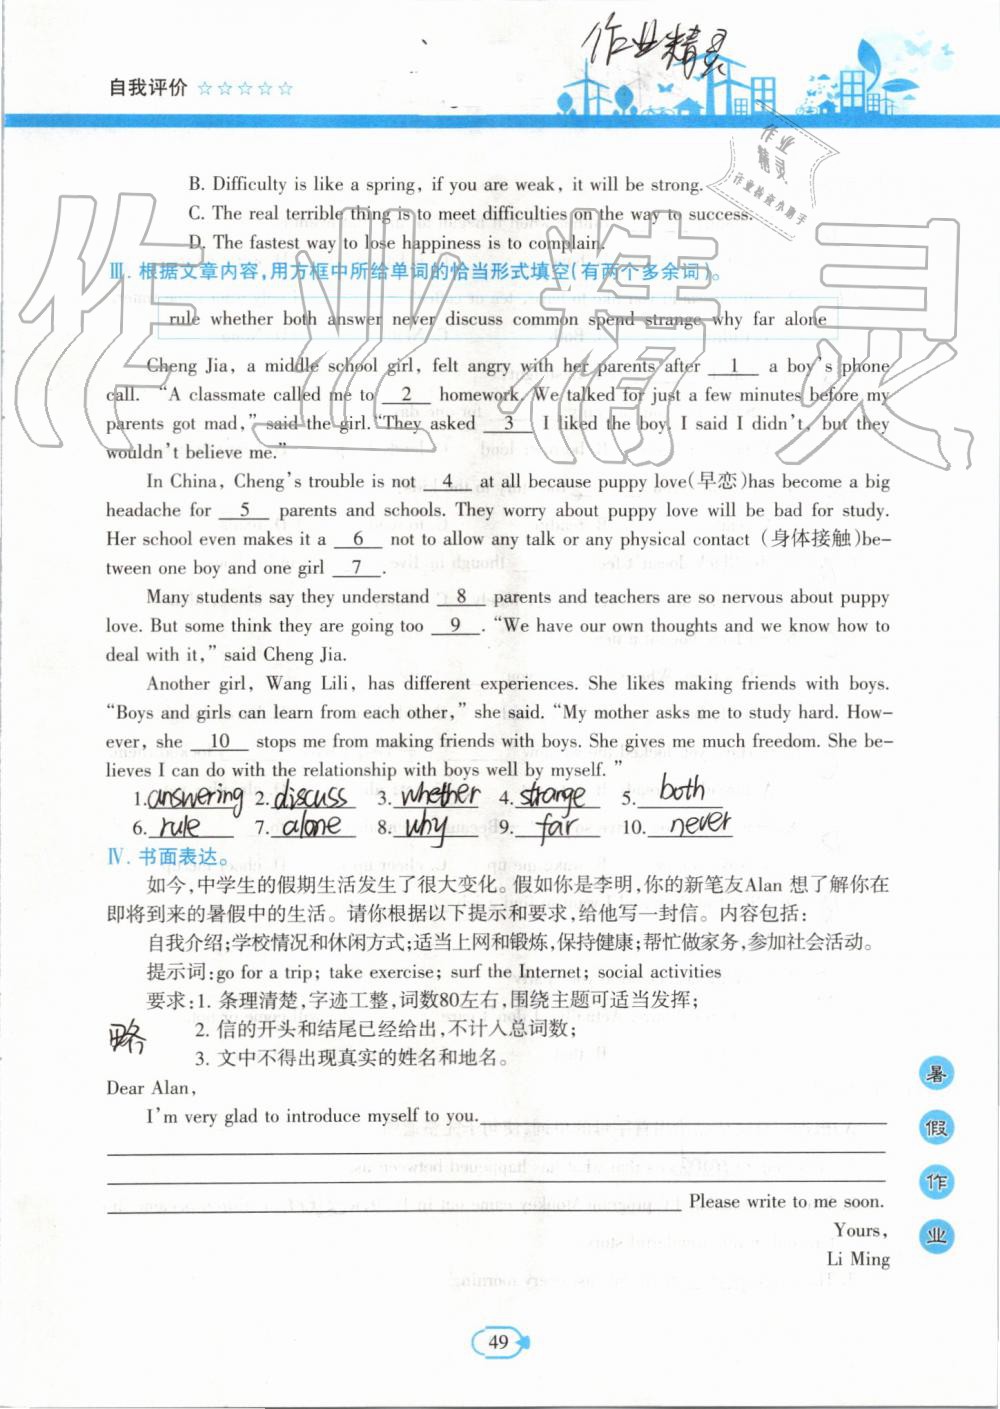 作业精灵
自我评价 ☆☆☆☆☆
作业
精灵
作业检查小助手
B. Difficulty is like a spring, if you are weak, it will be strong.
C. The real terrible thing is to meet difficulties on the way to success.
D. The fastest way to lose happiness is to complain.
Ⅲ. 根据文章内容,用方框中所给单词的恰当形式填空(有两个多余词)。
rule whether both answer never discuss common spend strange why far alone
Cheng Jia, a middle school girl, felt angry with her parents after 1 a boy's phone
call. “A classmate called me to 2 homework. We talked for just a few minutes before my
parents got mad,” said the girl.“They asked 3 I liked the boy. I said I didn't, but they
wouldn't believe me.”
In China, Cheng's trouble is not 4 at all because puppy love(早恋)has become a big
headache for 5 parents and schools. They worry about puppy love will be bad for study.
Her school even makes it a 6 not to allow any talk or any physical contact (身体接触)be-
tween one boy and one girl 7 .
Many students say they understand 8 parents and teachers are so nervous about puppy
love. But some think they are going too 9 . “We have our own thoughts and we know how to
deal with it,” said Cheng Jia.
Another girl, Wang Lili, has different experiences. She likes making friends with boys.
“Boys and girls can learn from each other,” she said. “My mother asks me to study hard. How-
ever, she 10 stops me from making friends with boys. She gives me much freedom. She be-
lieves I can do with the relationship with boys well by myself. ”
1. answering 2. discuss 3. whether 4. strange 5. both
6. rule 7. alone 8. why 9. far 10. never
Ⅳ. 书面表达。
如今,中学生的假期生活发生了很大变化。假如你是李明,你的新笔友Alan 想了解你在
即将到来的暑假中的生活。请你根据以下提示和要求,给他写一封信。内容包括:
自我介绍;学校情况和休闲方式;适当上网和锻炼,保持健康;帮忙做家务,参加社会活动。
提示词:go for a trip; take exercise; surf the Internet; social activities
要求:1. 条理清楚,字迹工整,词数80左右,围绕主题可适当发挥;
略 2. 信的开头和结尾已经给出,不计入总词数;
3. 文中不得出现真实的姓名和地名。
Dear Alan,
I'm very glad to introduce myself to you.
Please write to me soon.
Yours,
Li Ming
暑
假
作
业
49
作业精灵